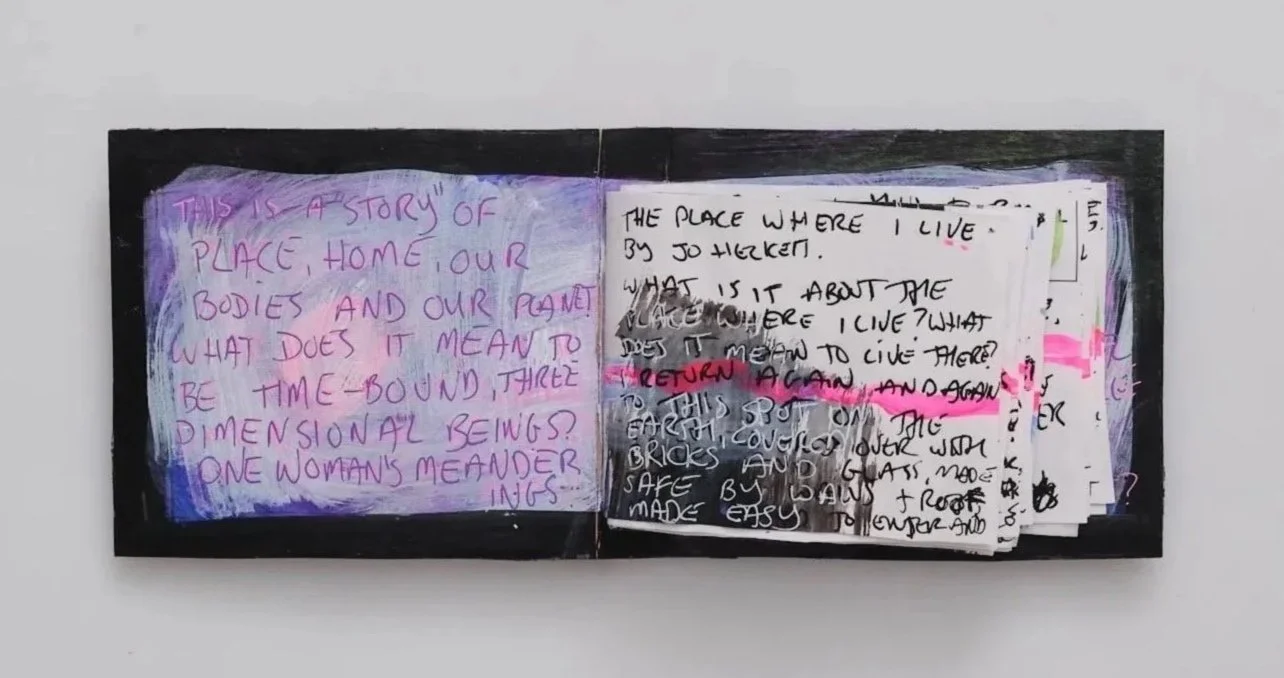 THIS IS A "STORY" OF
PLACE, HOME, OUR
BODIES AND OUR PLANET
WHAT DOES IT MEAN TO
BE TIME-BOUND, THREE
DIMENSIONAL BEINGS?
ONE WOMAN'S MEANDER
INGS...
THE PLACE WHERE I LIVE.
BY JO
WHAT IS IT ABOUT THE
PLACE WHERE I LIVE? WHAT
DOES IT MEAN TO LIVE THERE?
I RETURN AGAIN AND AGAIN
TO THIS SPOT ON THE
EARTH, COVERED OVER WITH
BRICKS AND GLASS, MADE
SAFE BY WALLS + ROOF
MADE EASY TO ENTER AND
ER